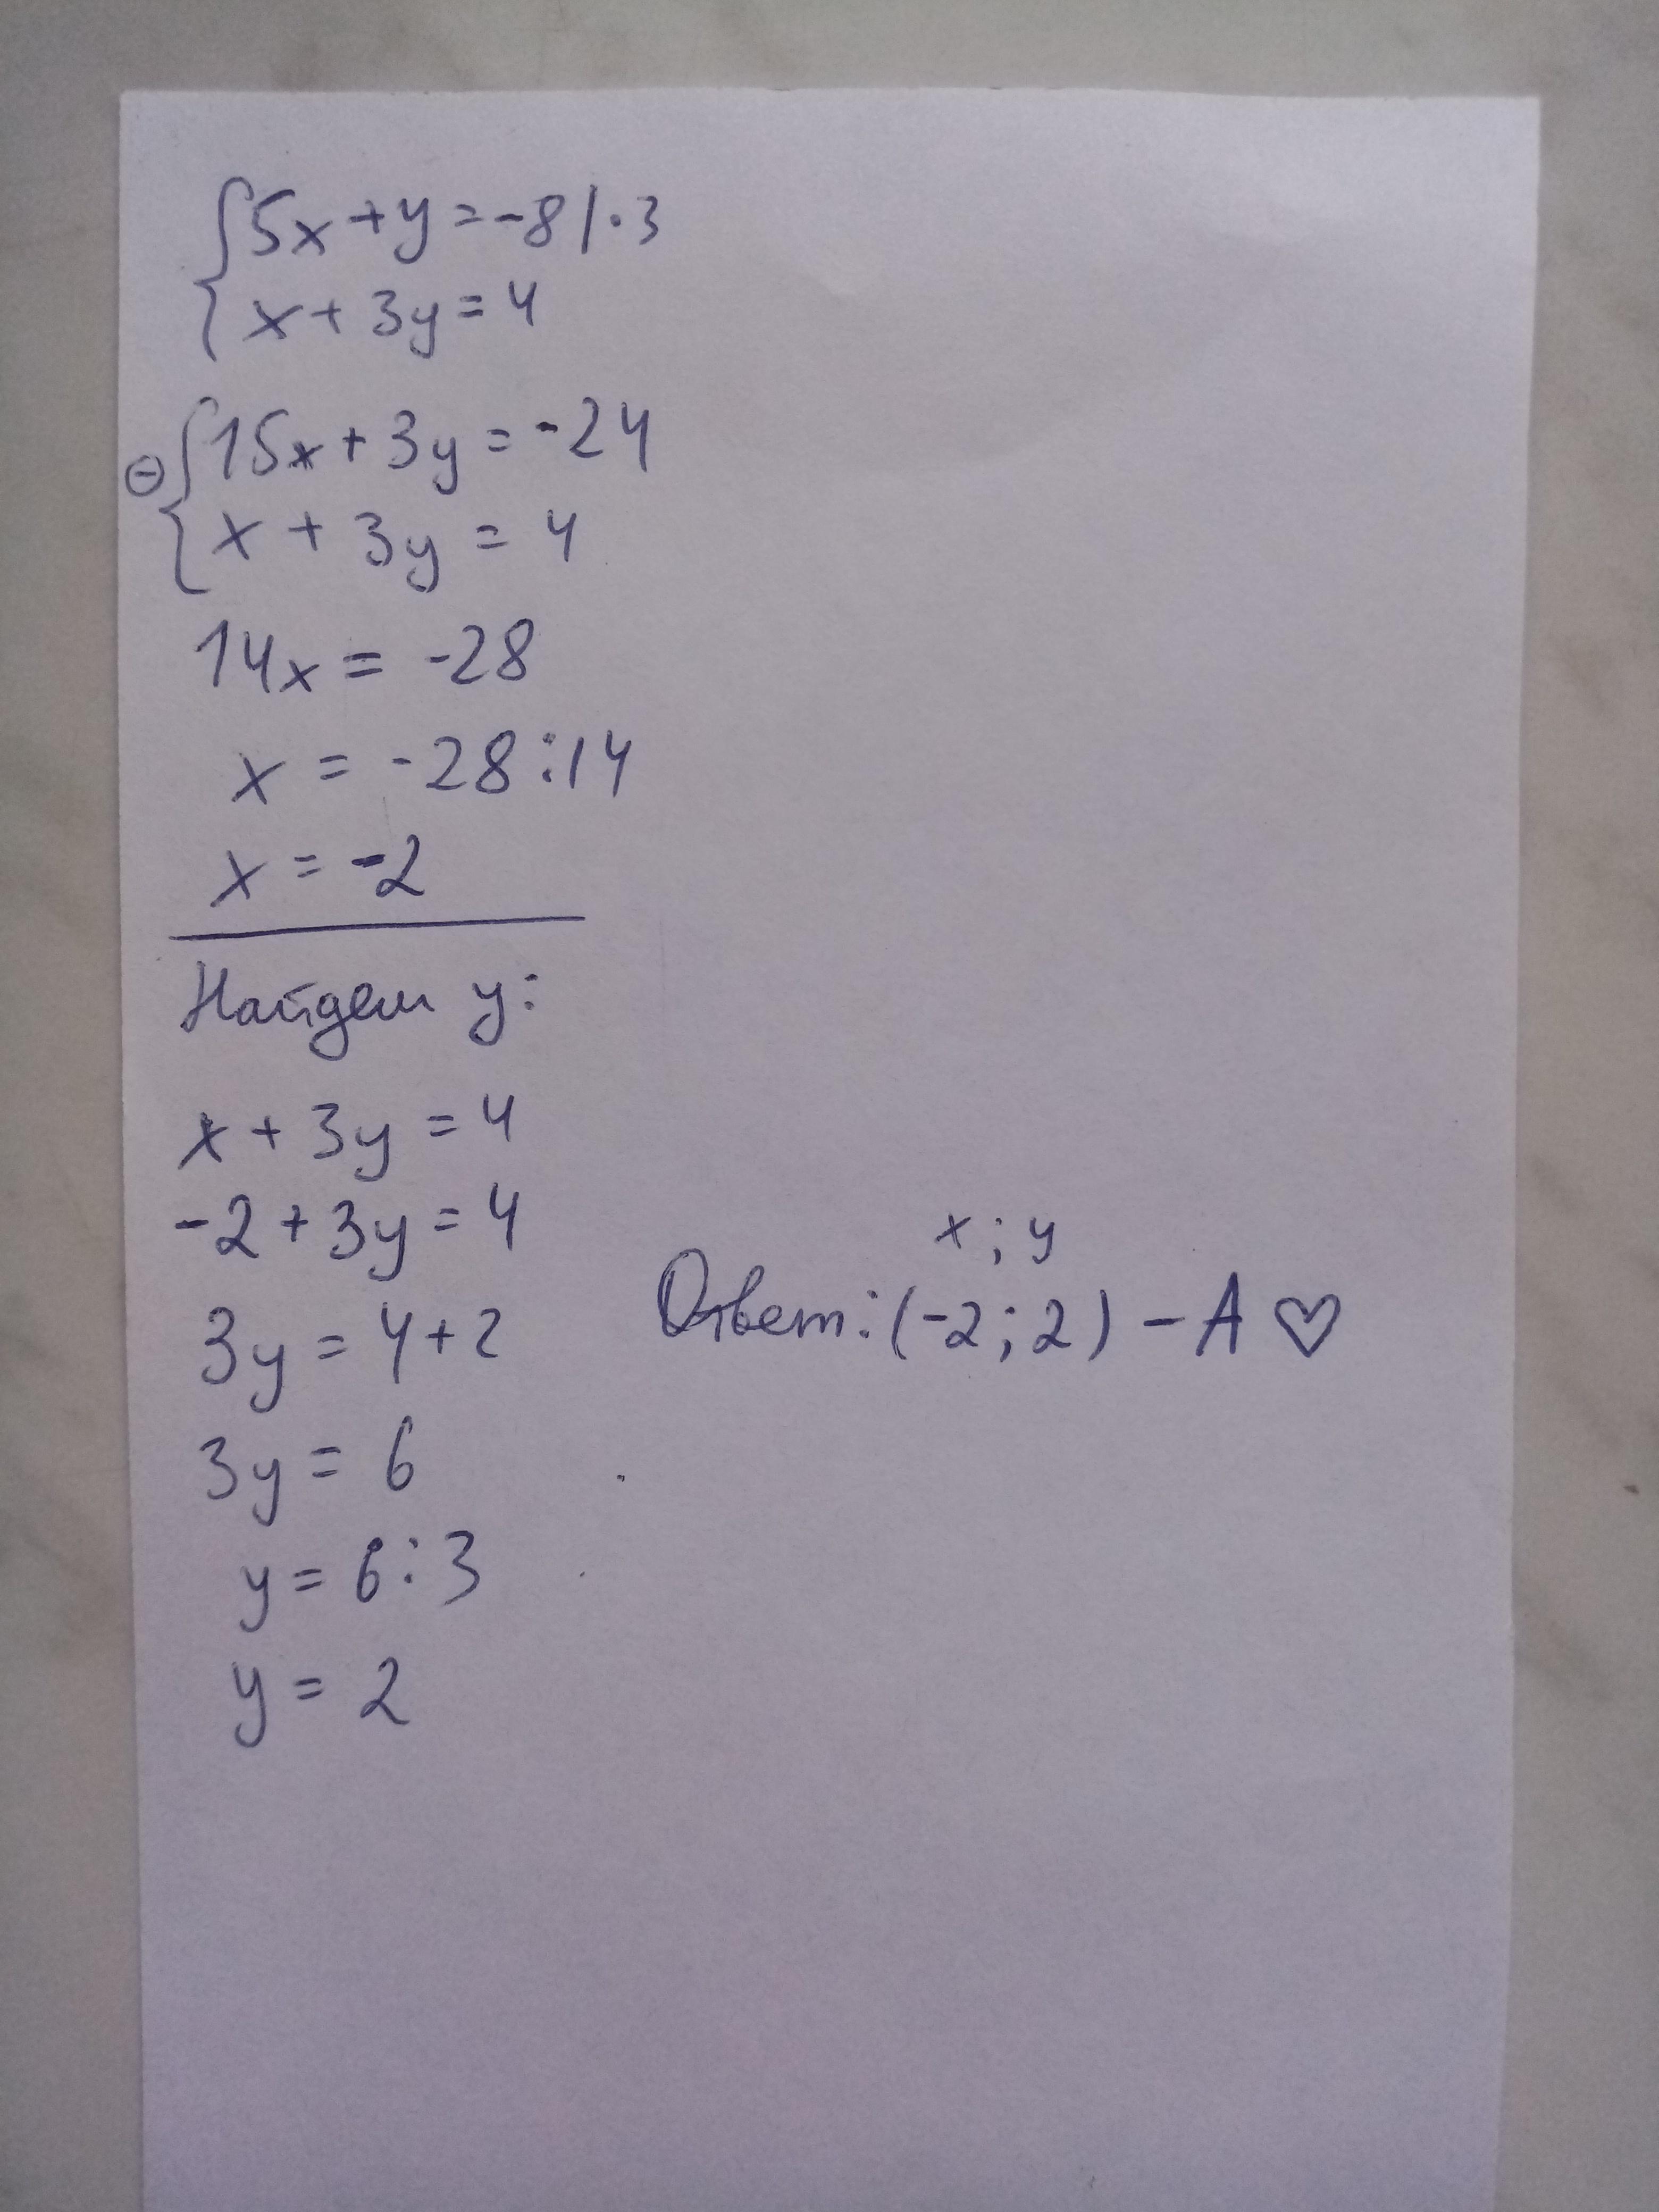 {5x+y=-8/·3
x+3y=4
⊖{15x+3y=-24
x+3y=4
14x=-28
x=-28:14
x=-2
Найдем y:
x+3y=4
-2+3y=4
3y=4+2
3y=6
y=6:3
y=2
x;y
Ответ:(-2;2)-А♡